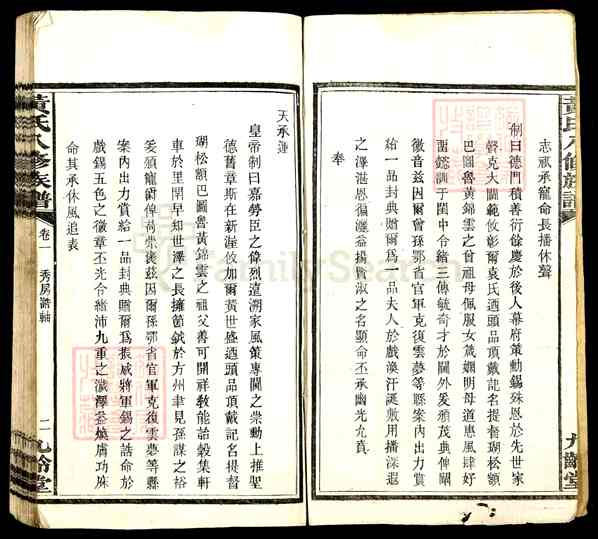 志祇承寵命長播休聲
制曰德門積善衍餘慶於後人幕府策勳錫殊恩於先世家
聲克大閫範攸彰爾袁氏迺頭品頂戴記名提督瑚松額
巴圖魯黃錦雲之曾祖母佩服女箴嫻明母道惠風肆好
懿訓于閨中令緒三傳毓奇才於閫外爰頒茂典俾闡
徽音茲因爾曾孫鄂省官軍克復雲夢等縣案內出力賞
給一品封典贈爾爲一品夫人於戲渙汗誕敷用播深遐
之澤湛恩徧灑益揚賢淑之名顯命丕承幽光允賁
奉
天承運
皇帝制曰嘉勞臣之偉烈遠溯家風策專閫之崇勳上推聖
德舊章斯在新渥攸加爾黃世盛迺頭品頂戴記名提督
瑚松額巴圖魯黃錦雲之祖父善可開祥敎能詒穀集軒
車於里閈早知世澤之長擁節鉞於方州聿見孫謀之裕
爰頒寵蔚俾荷崇褒茲因爾孫鄂省官軍克復雲夢等縣
案內出力賞給一品封典贈爾爲振威將軍錫之誥命於
戲錫五色之徽章丕光令緒沛九重之濊澤益煥膚功庥
命其承休風追表
黃氏八修族譜
卷一
秀房誥軸
二
九齡堂
黃氏八修族譜
九齡堂
FamilySearch